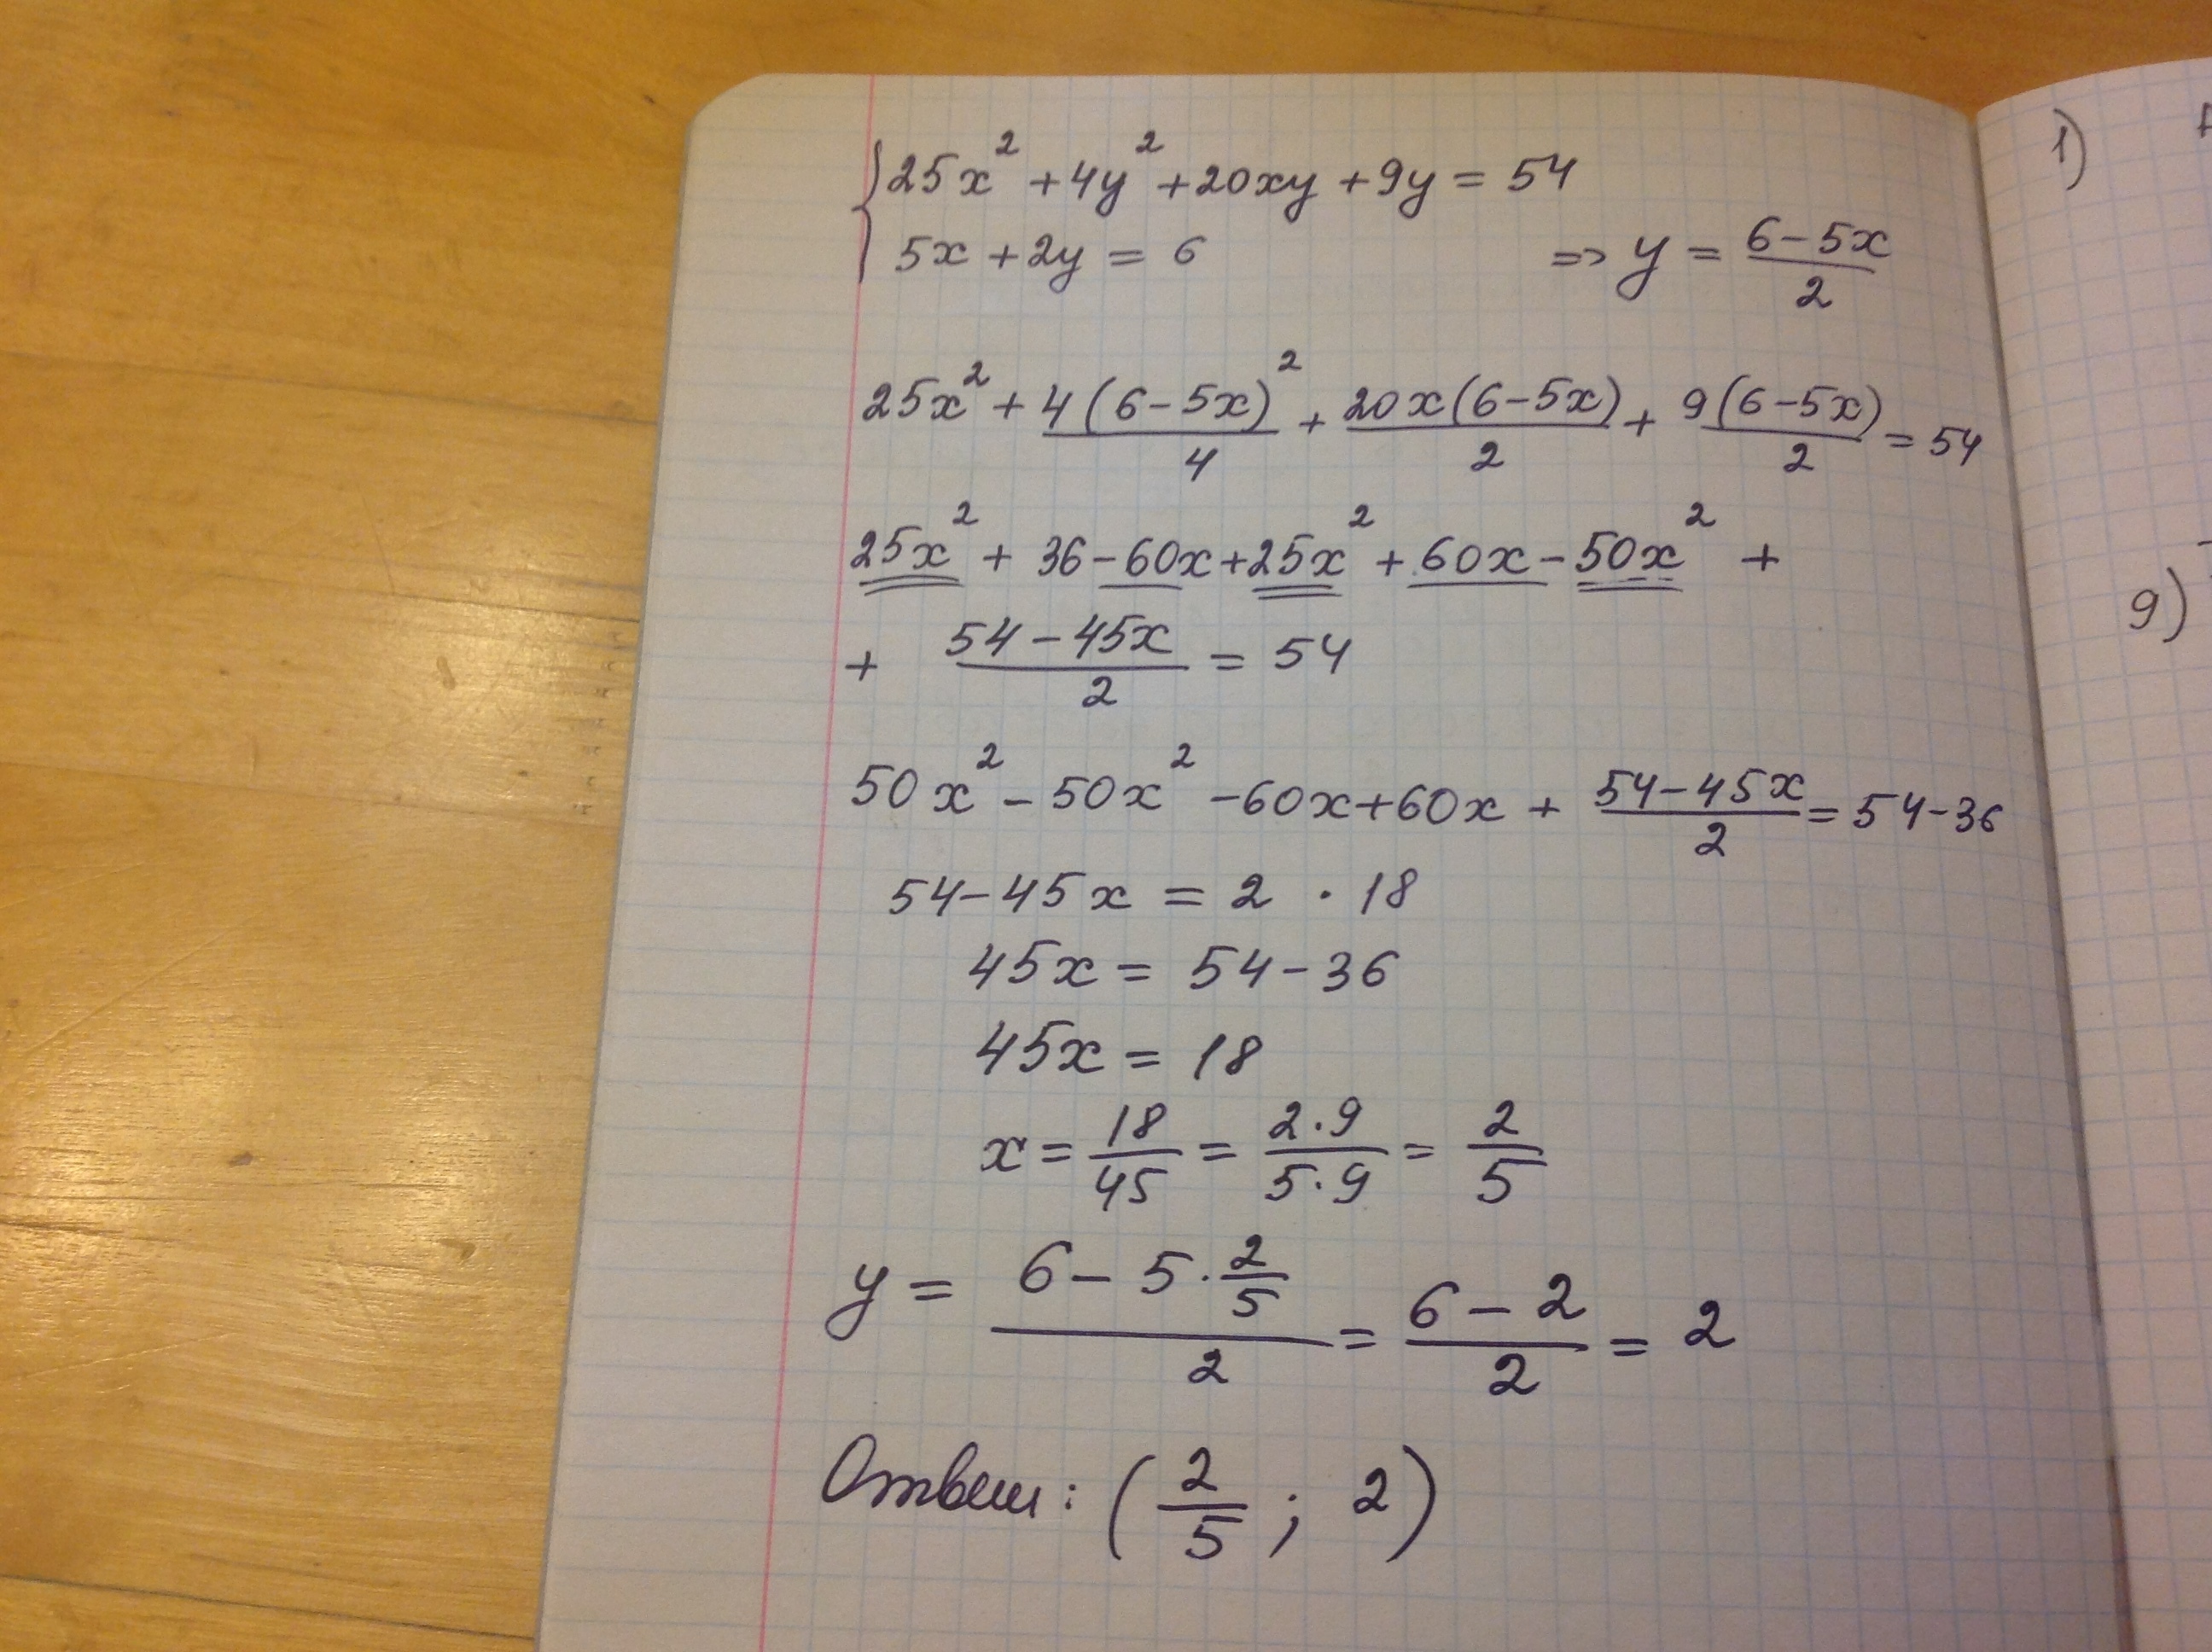 { 25x² + 4y² + 20xy + 9y = 54
5x + 2y = 6 => y = (6 - 5x)/2
25x² + 4(6 - 5x)²/4 + 20x(6 - 5x)/2 + 9(6 - 5x)/2 = 54
25x² + 36 - 60x + 25x² + 60x - 50x² +
+ (54 - 45x)/2 = 54
50x² - 50x² - 60x + 60x + (54 - 45x)/2 = 54 - 36
54 - 45x = 2 · 18
45x = 54 - 36
45x = 18
x = 18/45 = (2·9)/(5·9) = 2/5
y = (6 - 5 · 2/5)/2 = (6 - 2)/2 = 2
Ответ: (2/5 ; 2)
1)
9)